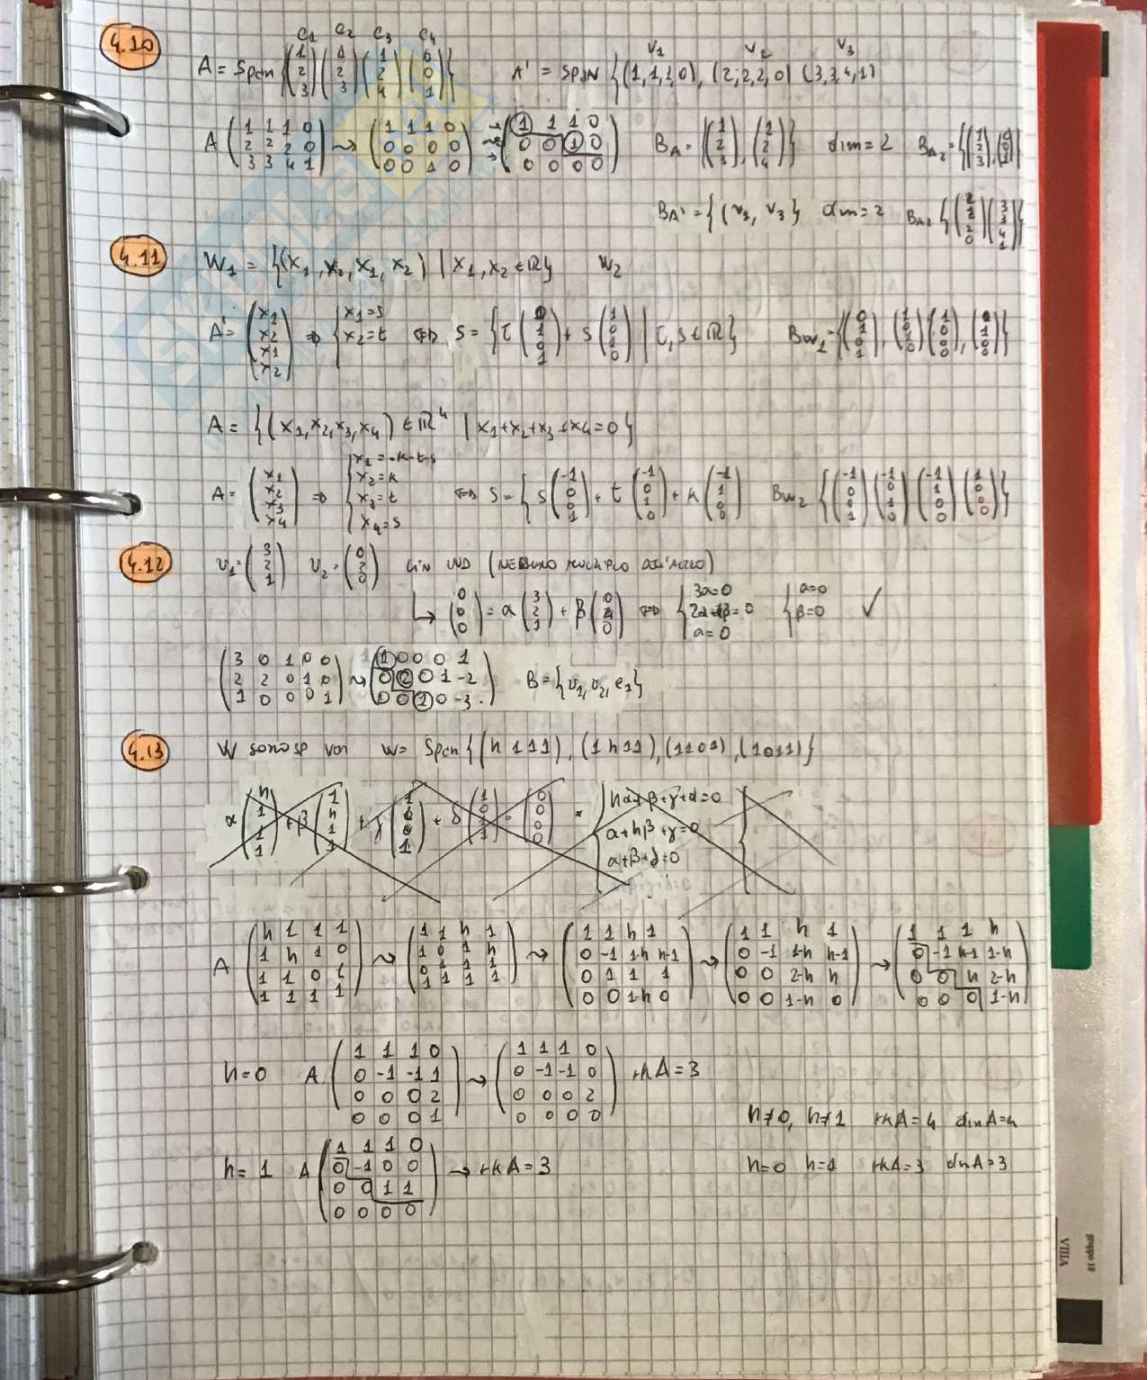 4.10
c₁ c₂ c₃ c₄
A = Span {(1 2 3) (1 2 3) (1 2 4) (0 0 1)} A' = SPAN {(1,1,1,0), (2,2,2,0) (3,3,4,1)}
v₁ v₂ v₃
A (1 1 1 0 / 2 2 2 0 / 3 3 4 1) ⇝ (1 1 1 0 / 0 0 0 0 / 0 0 1 0) → (1 1 1 0 / 0 0 1 0 / 0 0 0 0) B_A = {(1 2 3), (1 2 4)} dim = 2 B_A₂ = {(1 2 3), (0 0 1)}
B_A' = {(v₁, v₃} dim = 2 {(2 2 2 0) (3 3 4 1)}
4.11
W₁ = {(x₁, x₂, x₁, x₂) | x₁, x₂ ∈ ℝ} W₂
A' = (x₁ x₂ x₁ x₂) ⇒ {x₁ = s x₂ = t ⇔ S = {t (0 1 0 1) + s (1 0 1 0) | t, s ∈ ℝ}
A = {(x₁, x₂, x₃, x₄) ∈ ℝ⁴ | x₁+x₂+x₃+x₄ = 0}
A = (x₁ x₂ x₃ x₄) ⇒ {x₁ = -k-t-s x₂ = k x₃ = t x₄ = s ⇔ S = {s (-1 0 0 1) + t (-1 0 1 0) + k (-1 1 0 0) B_W₂ {(-1 0 0 1) (-1 0 1 0) (-1 1 0 0) (1 0 0 0)}
4.12
v₁ = (3 2 1) v₂ = (0 2 0) LIN IND (NESSUNO MULTIPLO DELL'ALTRO)
↳ (0 0 0) = α (3 2 1) + β (0 2 0) ⇔ {3α = 0 2α+2β = 0 α = 0 {α = 0 β = 0 ✓
(3 0 1 0 0 / 2 2 0 1 0 / 1 0 0 0 1) ⇝ (1 0 0 0 1 / 0 2 0 1 -2 / 0 0 1 0 -3) B = {v₁, v₂, e₁}
4.13
W sono sp W = Span {(h 1 1 1), (1 h 1 1), (1 1 0 1), (1 0 1 1)}
α (h 1 1 1) + β (1 h 1 1) + γ (1 0 1) + δ (1 1 1) = (0 0 0 0) {hα + β + γ + δ = 0
α + hβ + γ = 0
α + β + δ = 0
A (h 1 1 1 / 1 h 1 0 / 1 1 0 1 / 1 1 1 1) ⇝ (1 1 h 1 / 1 0 1 h / 0 1 1 1 / 1 1 1 1) ⇝ (1 1 h 1 / 0 -1 1-h h-1 / 0 1 1 1 / 0 0 1-h 0) ⇝ (1 1 h 1 / 0 -1 1-h h-1 / 0 0 2-h h / 0 0 1-h 0) → (1 1 1 h / 0 -1 h-1 1-h / 0 0 h 2-h / 0 0 0 1-h)
h = 0 A (1 1 1 0 / 0 -1 -1 1 / 0 0 0 2 / 0 0 0 1) ⇝ (1 1 1 0 / 0 -1 -1 0 / 0 0 0 2 / 0 0 0 0) rkA = 3
h ≠ 0, h ≠ 1 rkA = 4 dimA = 4
h = 1 A (1 1 1 0 / 0 -1 0 0 / 0 0 1 1 / 0 0 0 0) → rkA = 3
h = 0 h = 1 rkA = 3 dimA = 3
VIIIA
gruppo 18